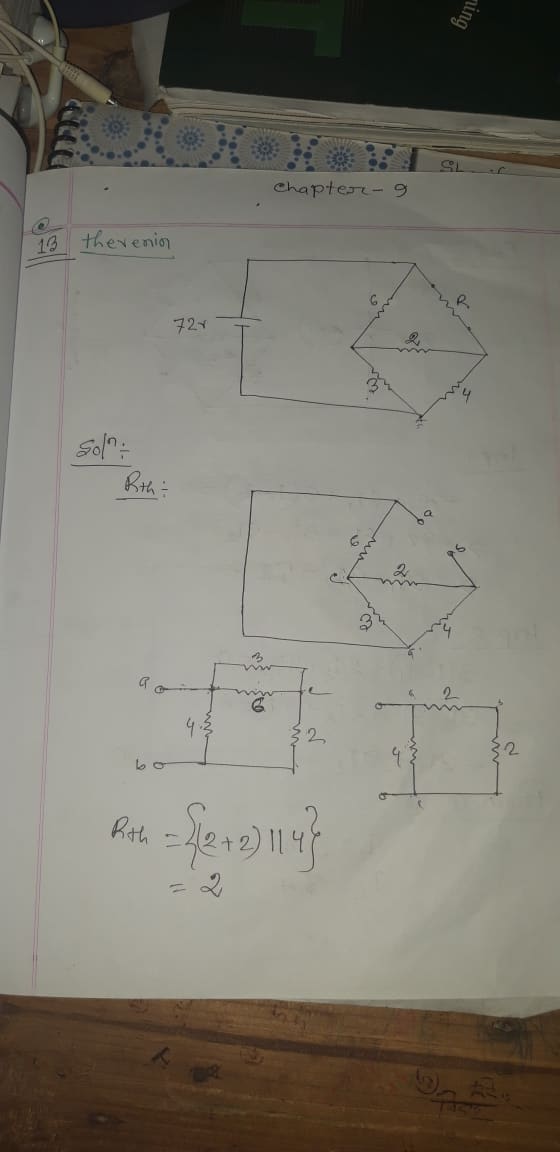 ning
chapter - 9
13 thevenin
72v
6
R
2
3
4
Soln:
Rth:
a
6
b
c
2
3
4
a
3
a
6
c
4
2
b
a
2
b
4
2
Rth = {(2+2) || 4}
= 2